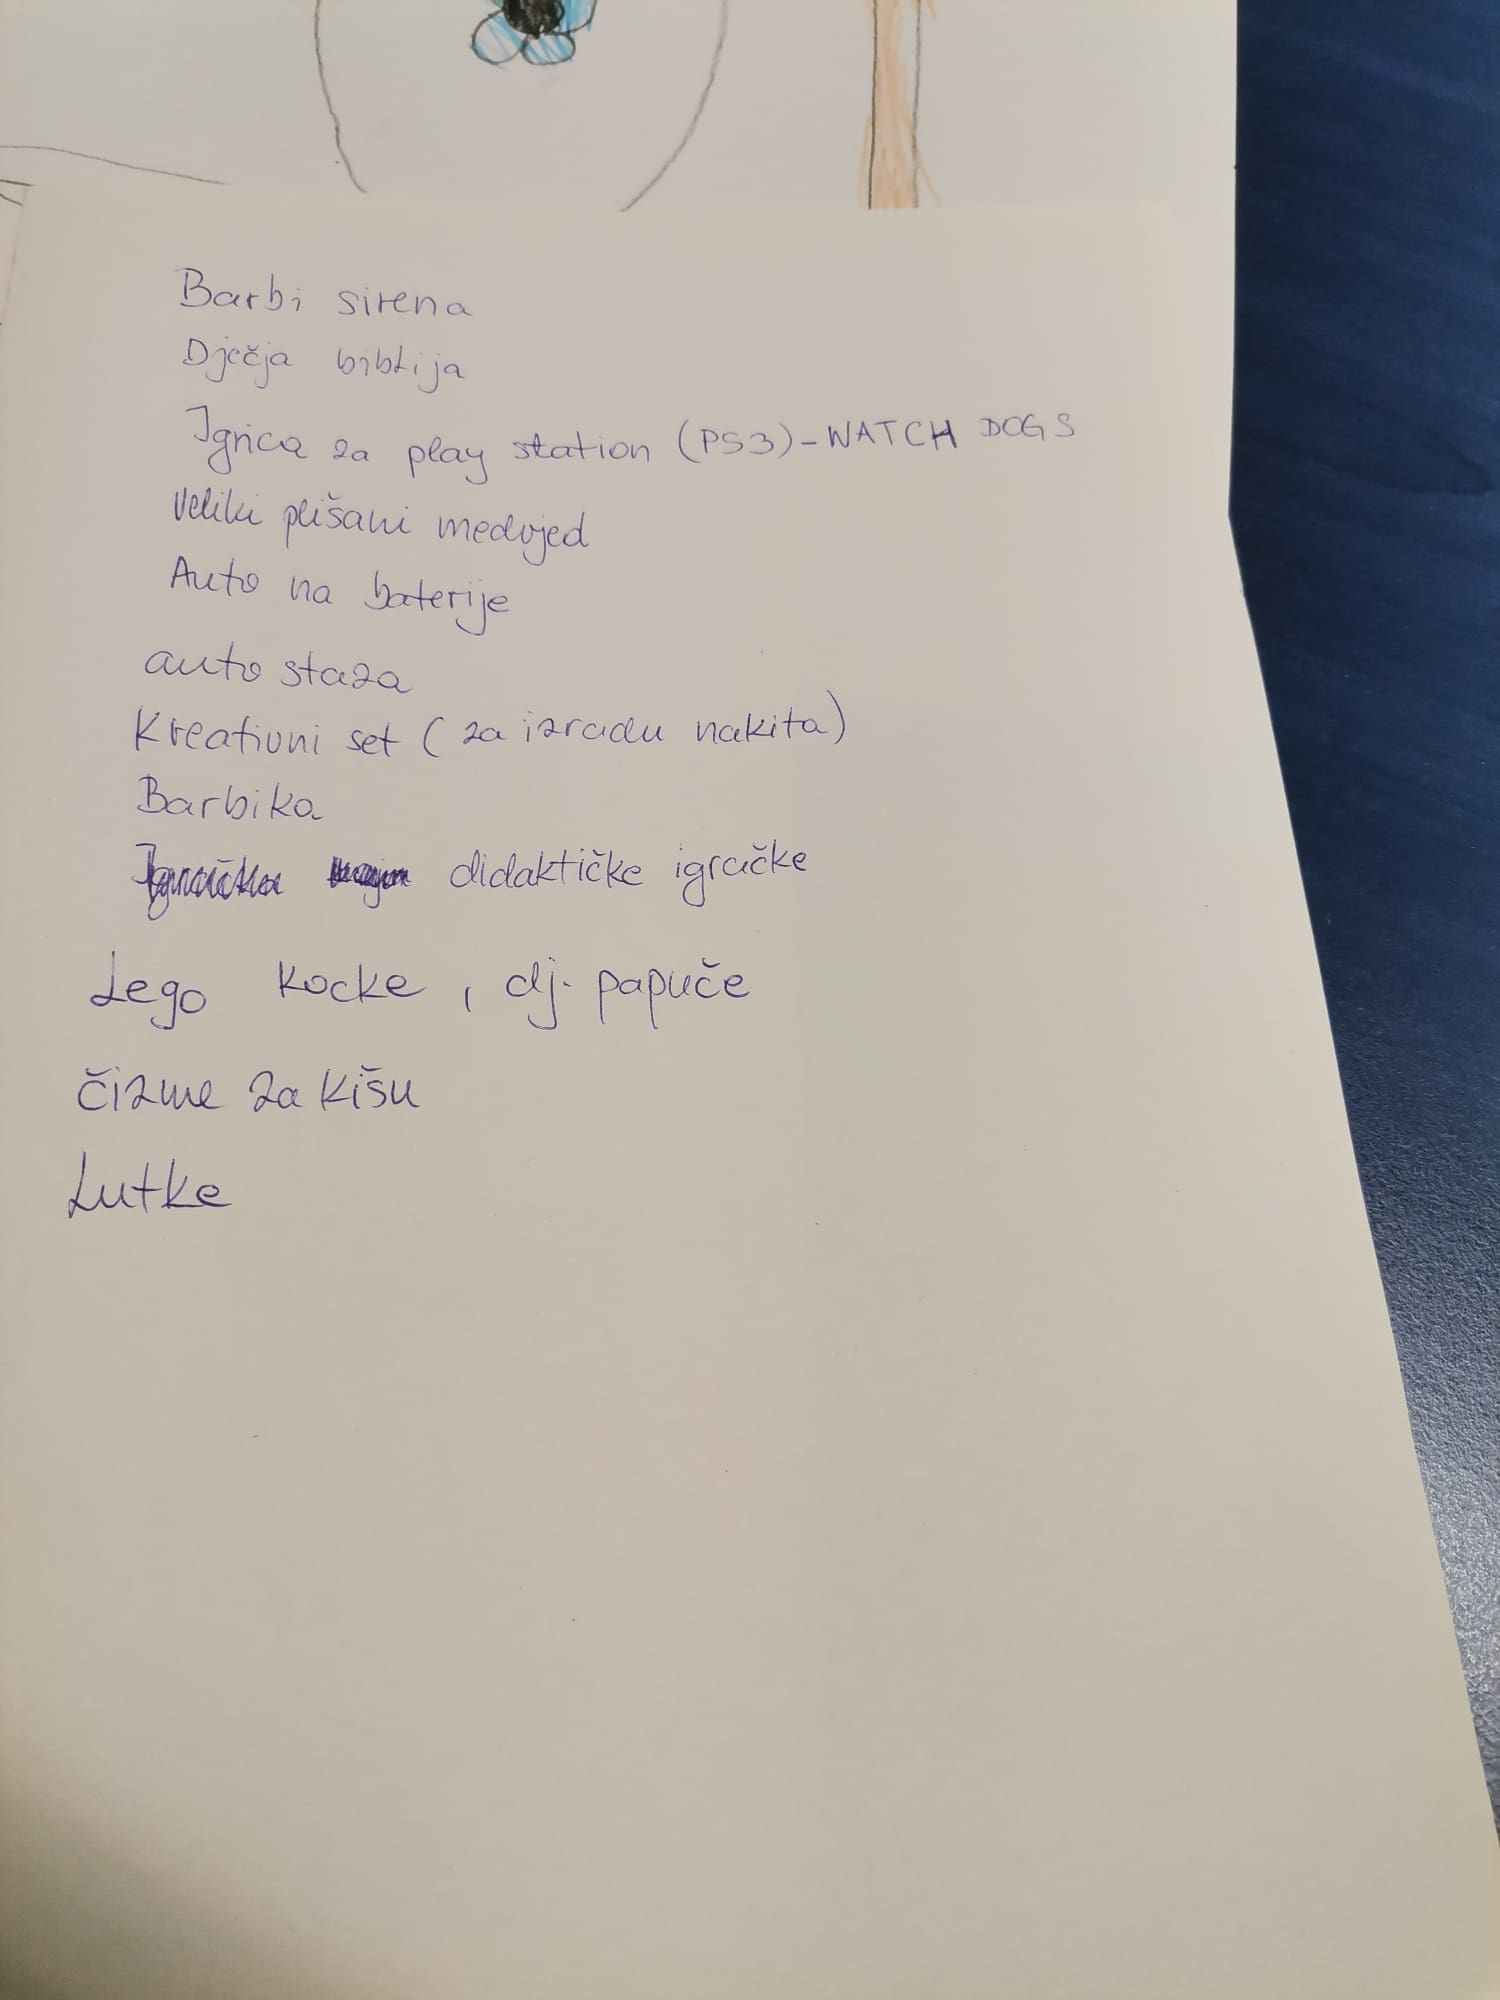 Barbi sirena
Dječja biblija
Igrica za play station (PS3)-WATCH DOGS
Veliki plišani medvjed
Auto na baterije
auto staza
Kreativni set (za izradu nakita)
Barbika
didaktičke igračke
Lego kocke, dj. papuče
čizme za kišu
Lutke